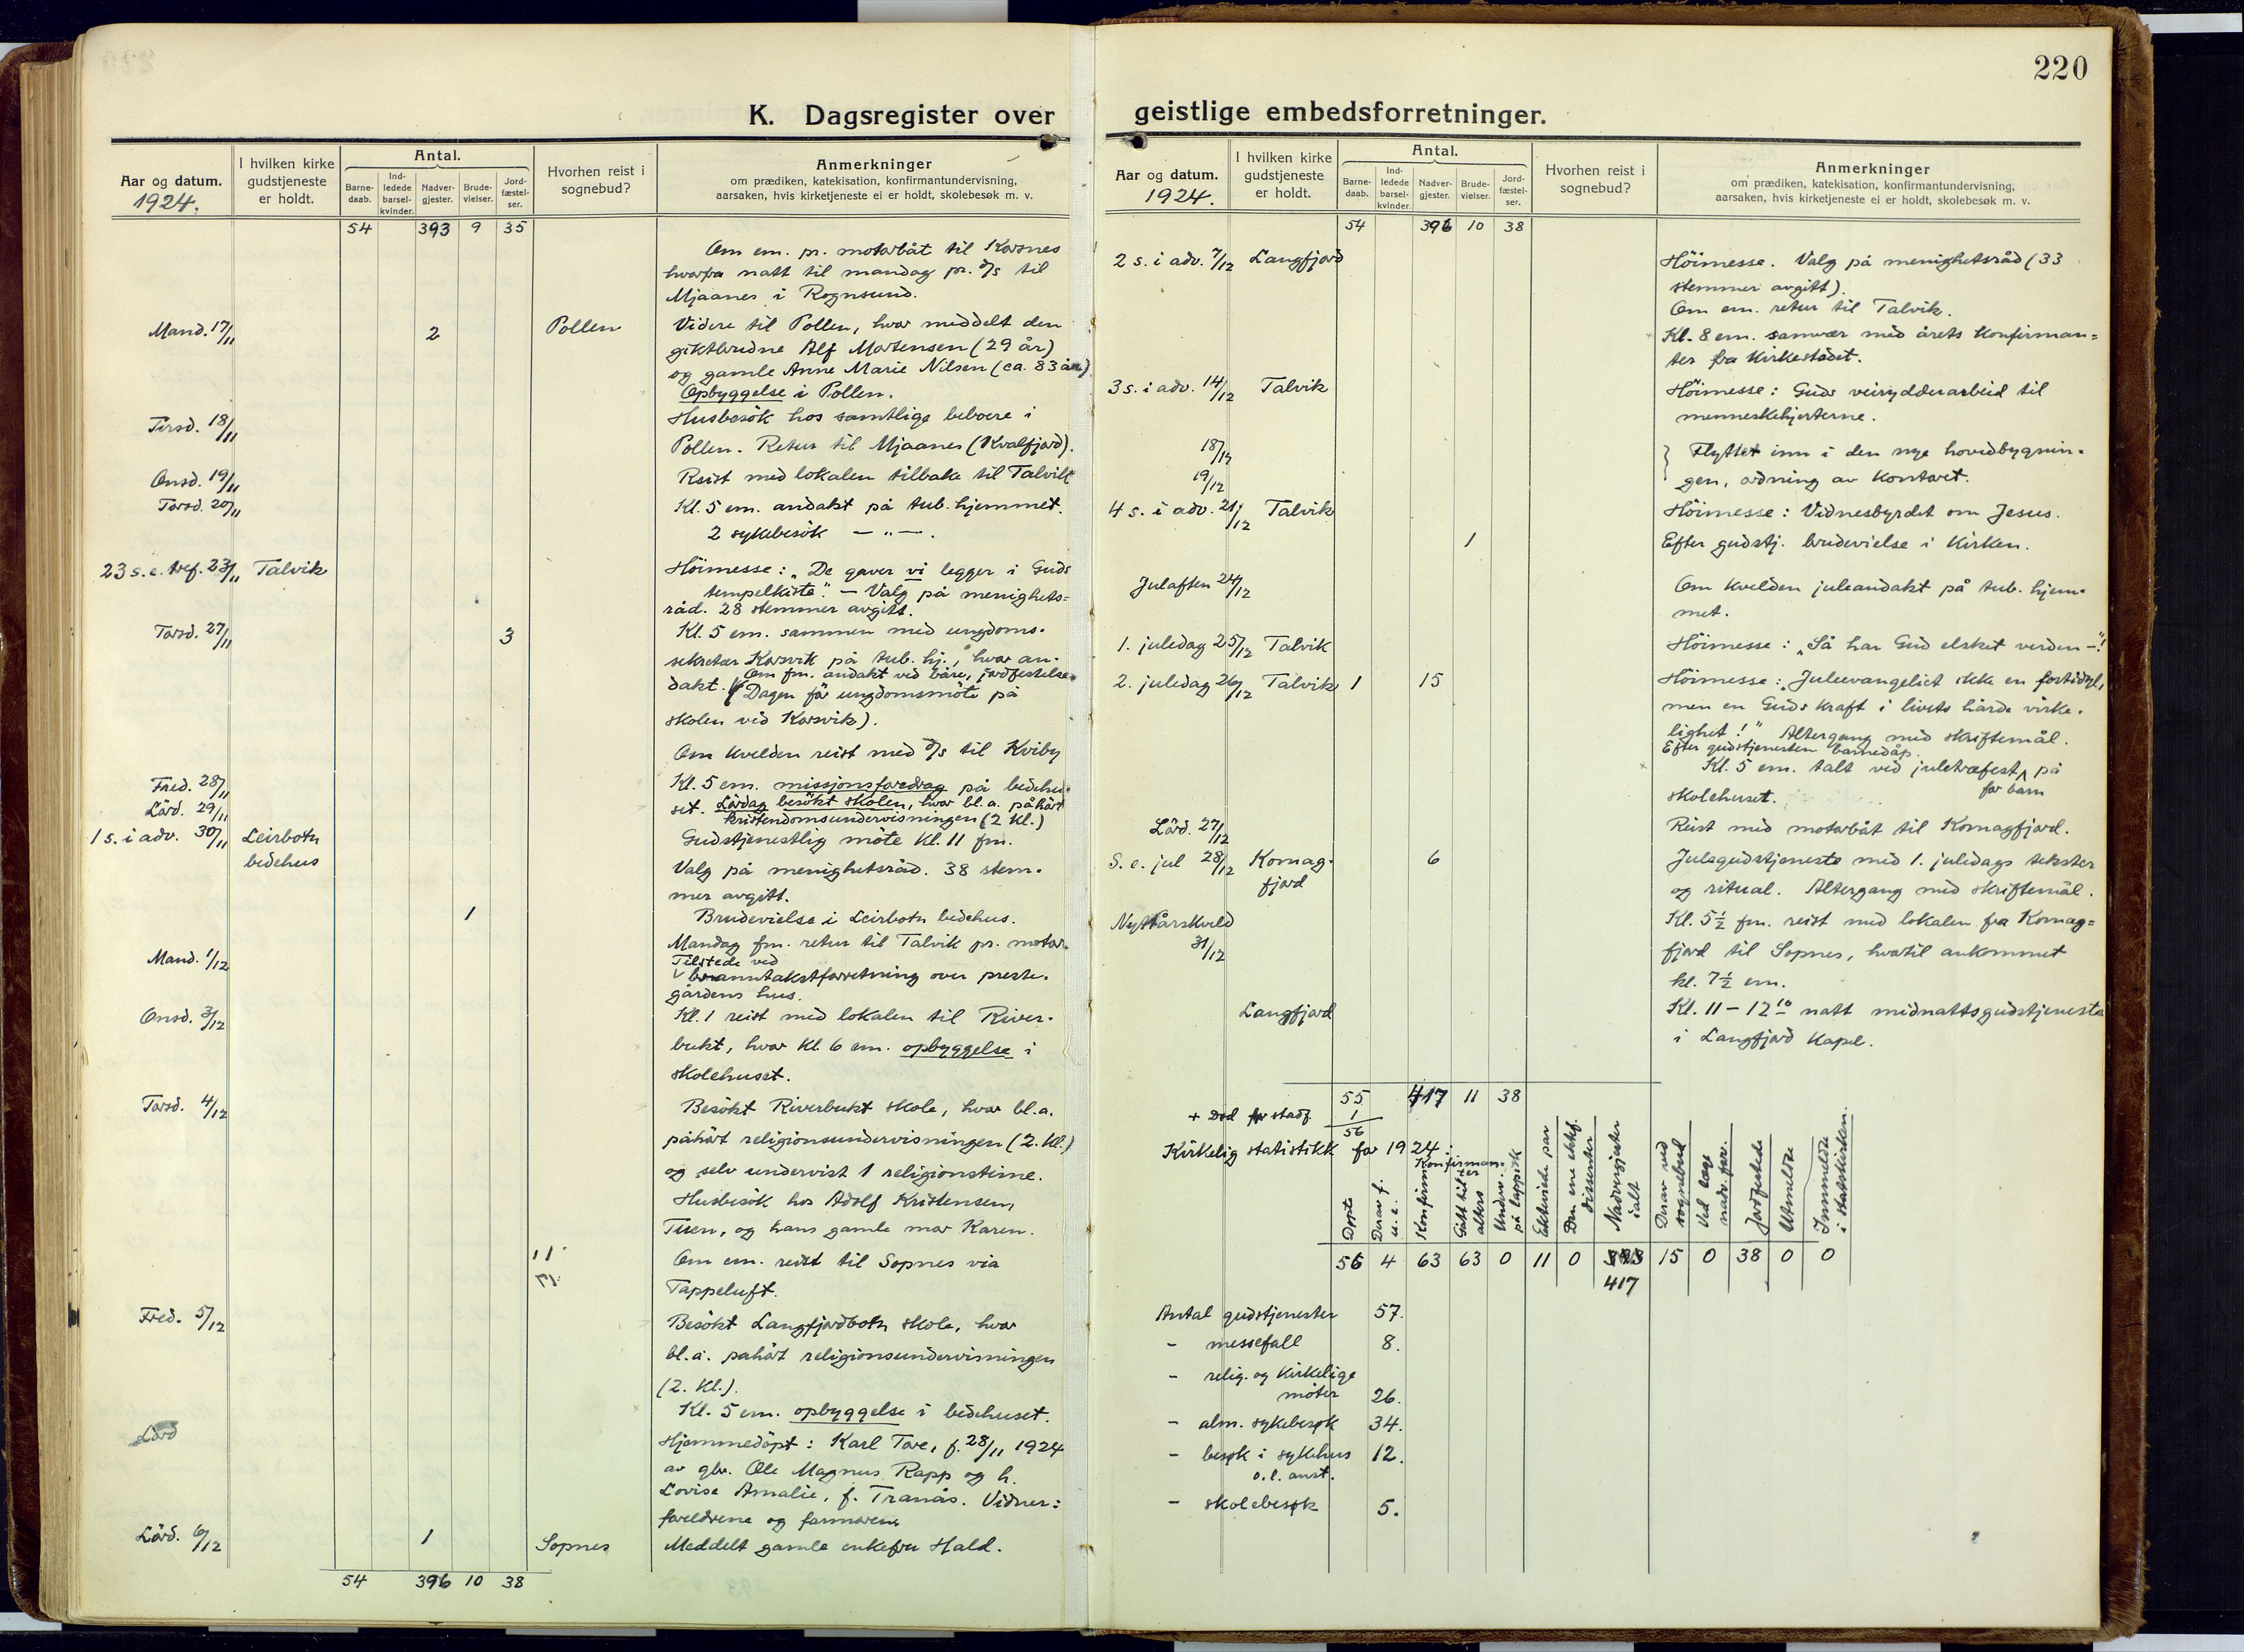 220
K. Dagsregister over
Aar og datum.
1924.
I hvilken kirke
gudstjeneste
er holdt.
Antal.
Barne-
daab.
Ind-
ledede
barsel-
kvinder.
Nadver-
gjester.
Brude-
vielser.
Jord-
fæstel-
ser.
Hvorhen reist i
sognebud?
Anmerkninger
om prædiken, katekisation, konfirmantundervisning,
aarsaken, hvis kirketjeneste ei er holdt, skolebesøk m. v.
54 393 9 35
Om em. pr. motorbåt til Korsnes
hvorfra natt til mandag pr. d/s til
Mjaanes i Rognsund.
Mand. 17/11 2 Pollen Videre til Pollen, hvor meddelt den
giktbrudne Alf Mortensen (29 år)
og gamle Anne Marie Nilsen (ca. 83 år)
Opbyggelse i Pollen.
Tirsd. 18/11 Husbesök hos samtlige beboere i
Pollen. Retur til Mjaanes (Kvalfjord).
Onsd. 19/11 Reist med lokalen tilbake til Talvik
Torsd. 20/11 Kl. 5 em. andakt på tub. hjemmet.
2 sykebesök — „ — .
23 s. e. tref. 23/11 Talvik Höimesse: „De gaver vi legger i Guds
tempelkiste". — Valg på menighets=
råd. 28 stemmer avgitt.
Torsd. 27/11 3 Kl. 5 em. sammen med ungdoms-
sekretær Korsvik på tub. hj., hvor an-
Om fm. andakt ved båre, jordfestelse.
dakt. (Dagen för ungdomsmöte på
skolen ved Korsvik).
Om kvelden reist med d/s til Kviby
Fred. 28/11 Kl. 5 em. missjonsforedrag på bedehu-
Lörd. 29/11 set. Lördag besökt skolen, hvor bl.a. påhört
kristendomsundervisningen (2 kl.)
1 s. i adv. 30/11 Leirbotn Gudstjenestlig möte kl. 11 fm.
bedehus Valg på menighetsråd. 38 stem-
mer avgitt.
1 Brudevielse i Leirbotn bedehus.
Mand. 1/12 Mandag fm. retur til Talvik pr. motor.
Tilstede ved
branntakstforretning over preste-
gårdens hus.
Onsd. 3/12 Kl. 1 reist med lokalen til River-
bukt, hvor kl. 6 em. opbyggelse i
skolehuset.
Torsd. 4/12 Besökt Riverbukt skole, hvor bl.a.
påhört religionsundervisningen (2. kl.)
og selv undervist 1 religionstime.
Husbesök hos Adolf Kristensen,
Tuen, og hans gamle mor Karen.
Om em. reist til Sopnes via
Tappeluft.
Fred. 5/12 Besökt Langfjordbotn skole, hvor
bl.a. påhört religionsundervisningen
(2. kl.).
Kl. 5 em. opbyggelse i bedehuset.
Lörd Hjemmedöpt: Karl Tore, f. 28/11 1924
av gbr. Ole Magnus Rapp og h.
Lovise Amalie, f. Tranås. Vidner:
foreldrene og farmoren
Lörd. 6/12 1 Sopnes Meddelt gamle enkefru Hald.
54 396 10 38
geistlige embedsforretninger.
Aar og datum.
1924.
I hvilken kirke
gudstjeneste
er holdt.
Antal.
Barne-
daab.
Ind-
ledede
barsel-
kvinder.
Nadver-
gjester.
Brude-
vielser.
Jord-
fæstel-
ser.
Hvorhen reist i
sognebud?
Anmerkninger
om prædiken, katekisation, konfirmantundervisning,
aarsaken, hvis kirketjeneste ei er holdt, skolebesøk m. v.
54 396 10 38
2 s. i adv. 7/12 Langfjord Höimesse. Valg på menighetsråd (33
stemmer avgitt).
Om em. retur til Talvik.
Kl. 8 em. samvær med årets konfirman=
ter fra kirkestedet.
3 s. i adv. 14/12 Talvik Höimesse: Guds veirydderarbeid til
menneskehjerterne.
18/12 } Flyttet inn i den nye hovedbygnin-
19/12 gen, ordning av kontoret.
4 s. i adv. 21/12 Talvik Höimesse: Vidnesbyrdet om Jesus.
1 Efter gudstj. brudevielse i kirken.
Julaften 24/12 Om kvelden juleandakt på tub. hjem-
met.
1. juledag 25/12 Talvik Höimesse: „Så har Gud elsket verden —"!
2. juledag 26/12 Talvik 1 15 Höimesse: „Juleevangeliet ikke en fortidsyl,
men en Guds kraft i livets hårde virke-
lighet!" Altergang med skriftemål.
Efter gudstjenesten barnedåp.
Kl. 5 em. talt ved juletrefest på
for barn
skolehuset.
Lörd. 27/12 Reist med motorbåt til Komagfjord.
S. e. jul 28/12 Komag- 6 Julegudstjeneste med 1. juledags tekster
fjord og ritual. Altergang med skriftemål.
Nyttårskveld Kl. 5 ½ fm. reist med lokalen fra Komag=
31/12 fjord til Sopnes, hvortil ankommet
kl. 7 ½ em.
Langfjord Kl. 11 — 12 10 natt midnattsgudstjeneste
i Langfjord kapel.
55 417 11 38
+ Död før stadf. 1
56
Kirkelig statistikk for 1924:
Döpte
Derav f.
u. e.
Konfirman=
ter
Konfirm.
Gått til
alters
Underv.
på lappisk
Ektevide par
Den ene ektef.
dissenter
Nadvergjester
ialt
Derav ved
sognebud
Ved læge
nadv. for.
Jordfestede
Utmeldte
Innmeldte
i statskirken.
56 4 63 63 0 11 0 15 0 38 0 0
417
Antal gudstjenester 57.
- messefall 8.
- relig. og kirkelige
møter 26.
- alm. sykebesøk 34.
- besøk i sykehus 12.
o. l. anst.
- skolebesøk 5.